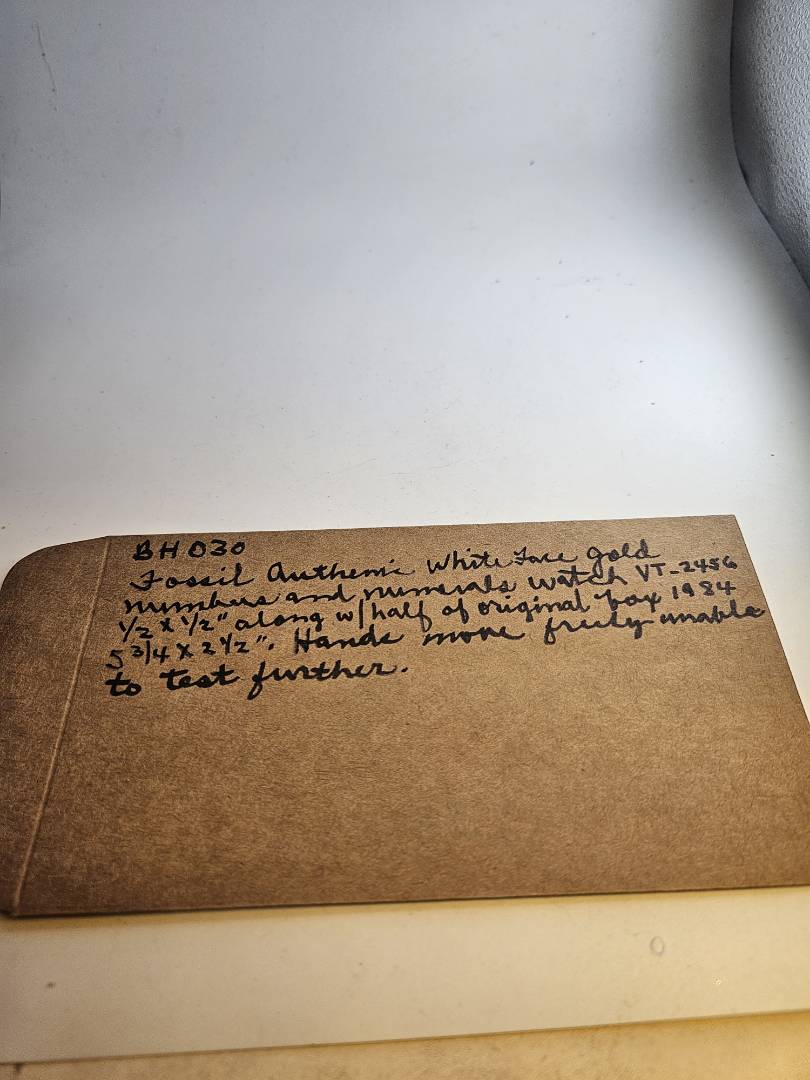 BH 030
Fossil Authenic White Face gold
numbers and numerals watch VT-2456
1/2 x 1/2" along w/half of original box 1984
5 3/4 x 2 1/2". Hands move freely unable
to test further.